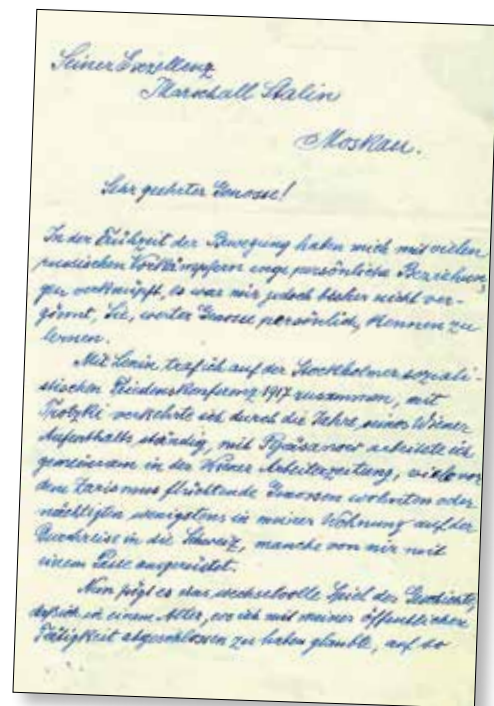 Seiner Exzellenz
Marschall Stalin
Moskau.
Sehr geehrter Genosse!
In der Frühzeit der Bewegung haben mich mit vielen
russischen Vorkämpfern enge persönliche Beziehun-
gen verknüpft, es war mir jedoch bisher nicht ver-
gönnt, Sie, werter Genosse persönlich, kennen zu
lernen.
Mit Lenin traf ich auf der Stockholmer soziali-
stischen Friedenskonferenz 1917 zusammen, mit
Trotzki verkehrte ich durch die Jahre seines Wiener
Aufenthalts ständig, mit Rjäsanow arbeitete ich
gemeinsam in der Wiener Arbeiterzeitung, viele vor
dem Zarismus flüchtende Genossen wohnten oder
nächtigten wenigstens in meiner Wohnung auf der
Durchreise in die Schweiz, manche von mir mit
einem Passe ausgerüstet.
Nun fügt es das wechselvolle Spiel der Geschichte,
daß ich in einem Alter, wo ich mit meiner öffentlichen
Tätigkeit abgeschlossen zu haben glaubte, auf so